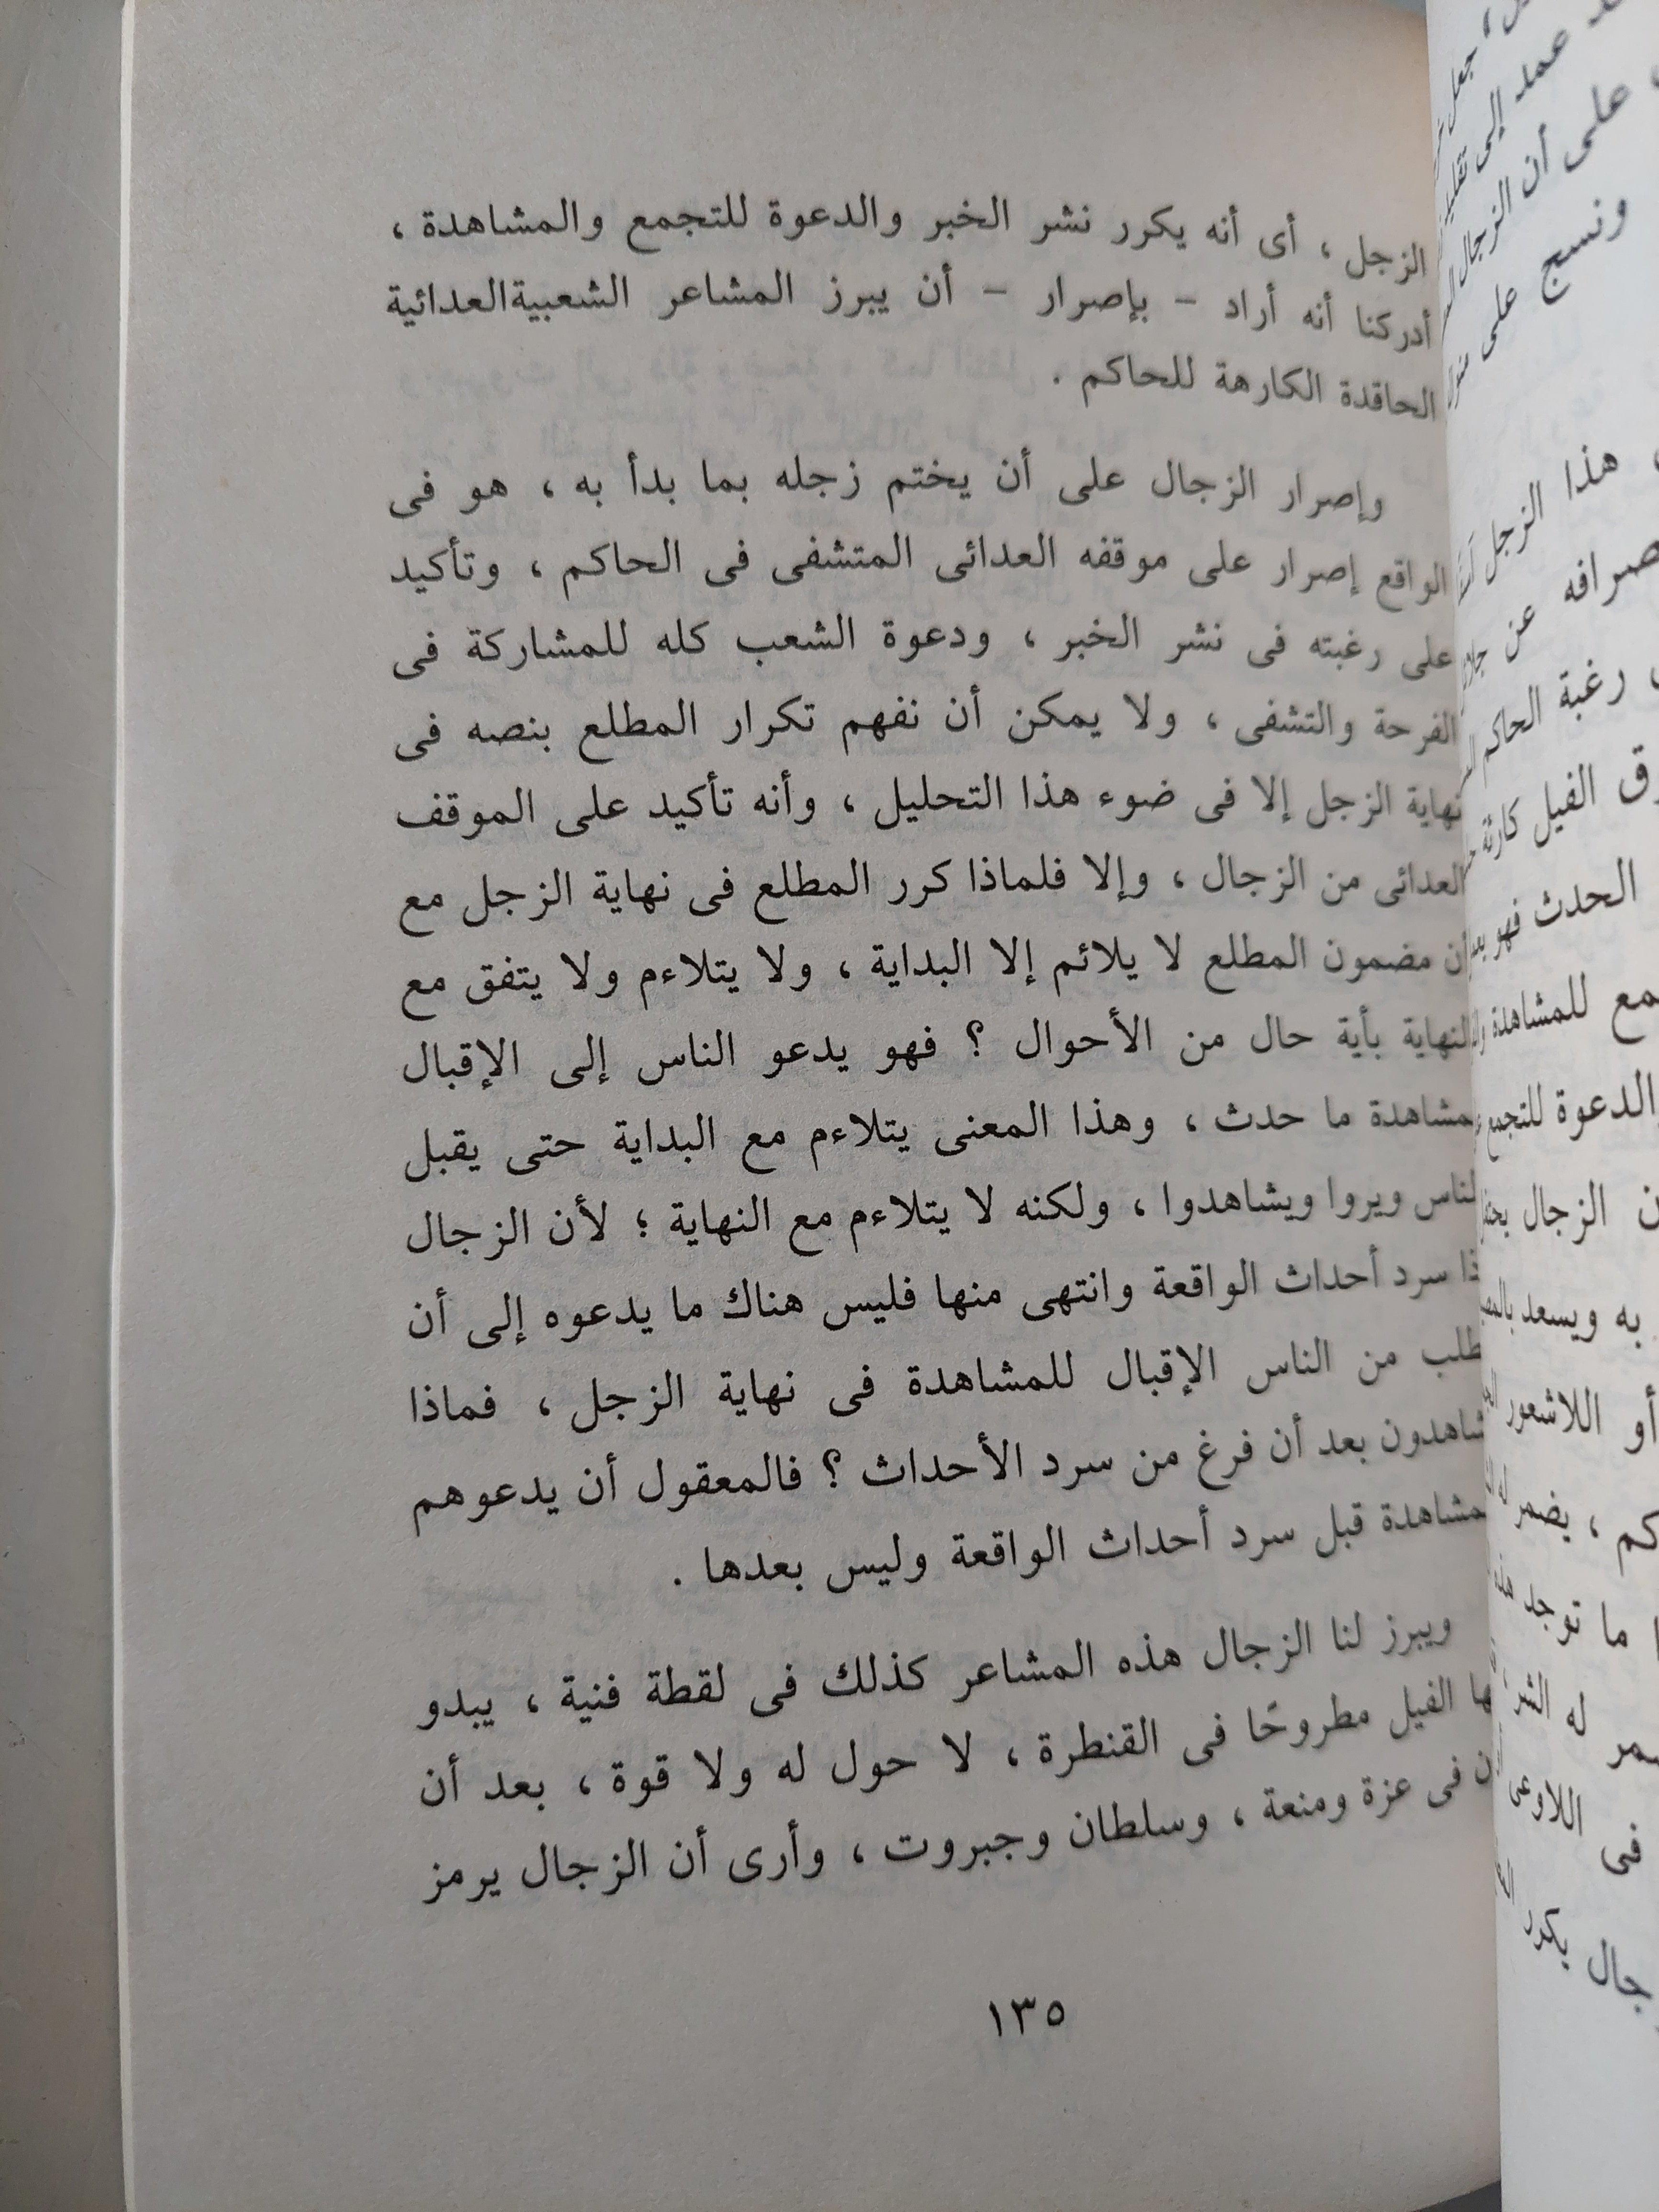 الزجل ، أى أنه يكرر نشر الخبر والدعوة للتجمع والمشاهدة ،
أدركنا أنه أراد – بإصرار – أن يبرز المشاعر الشعبيةالعدائية
الحاقدة الكارهة للحاكم .
وإصرار الزجال على أن يختم زجله بما بدأ به ، هو فى
الواقع إصرار على موقفه العدائى المتشفى فى الحاكم ، وتأكيد
على رغبته فى نشر الخبر ، ودعوة الشعب كله للمشاركة فى
الفرحة والتشفى ، ولا يمكن أن نفهم تكرار المطلع بنصه فى
نهاية الزجل إلا فى ضوء هذا التحليل ، وأنه تأكيد على الموقف
العدائى من الزجال ، وإلا فلماذا كرر المطلع فى نهاية الزجل مع
أن مضمون المطلع لا يلائم إلا البداية ، ولا يتلاءم ولا يتفق مع
النهاية بأية حال من الأحوال ؟ فهو يدعو الناس إلى الإقبال
مشاهدة ما حدث ، وهذا المعنى يتلاءم مع البداية حتى يقبل
الناس ويروا ويشاهدوا ، ولكنه لا يتلاءم مع النهاية ؛ لأن الزجال
ذا سرد أحداث الواقعة وانتهى منها فليس هناك ما يدعوه إلى أن
طلب من الناس الإقبال للمشاهدة فى نهاية الزجل ، فماذا
شاهدون بعد أن فرغ من سرد الأحداث ؟ فالمعقول أن يدعوهم
مشاهدة قبل سرد أحداث الواقعة وليس بعدها .
ويبرز لنا الزجال هذه المشاعر كذلك فى لقطة فنية ، يبدو
ها الفيل مطروحًا فى القنطرة ، لا حول له ولا قوة ، بعد أن
ن فى عزة ومنعة ، وسلطان وجبروت ، وأرى أن الزجال يرمز
١٣٥
عمد إلى
على أن الزجال
ونسج على
هذا الزجل
صرافه عن
رغبة الحاكم
ق الفيل كارثة
الحدث فهو
مع للمشاهدة
الدعوة للتجمع
ن الزجال
به ويسعد
أو اللاشعور
كم ، يضمر
ما توجد
مر له الشر
فى اللاوعى
جال يكرر